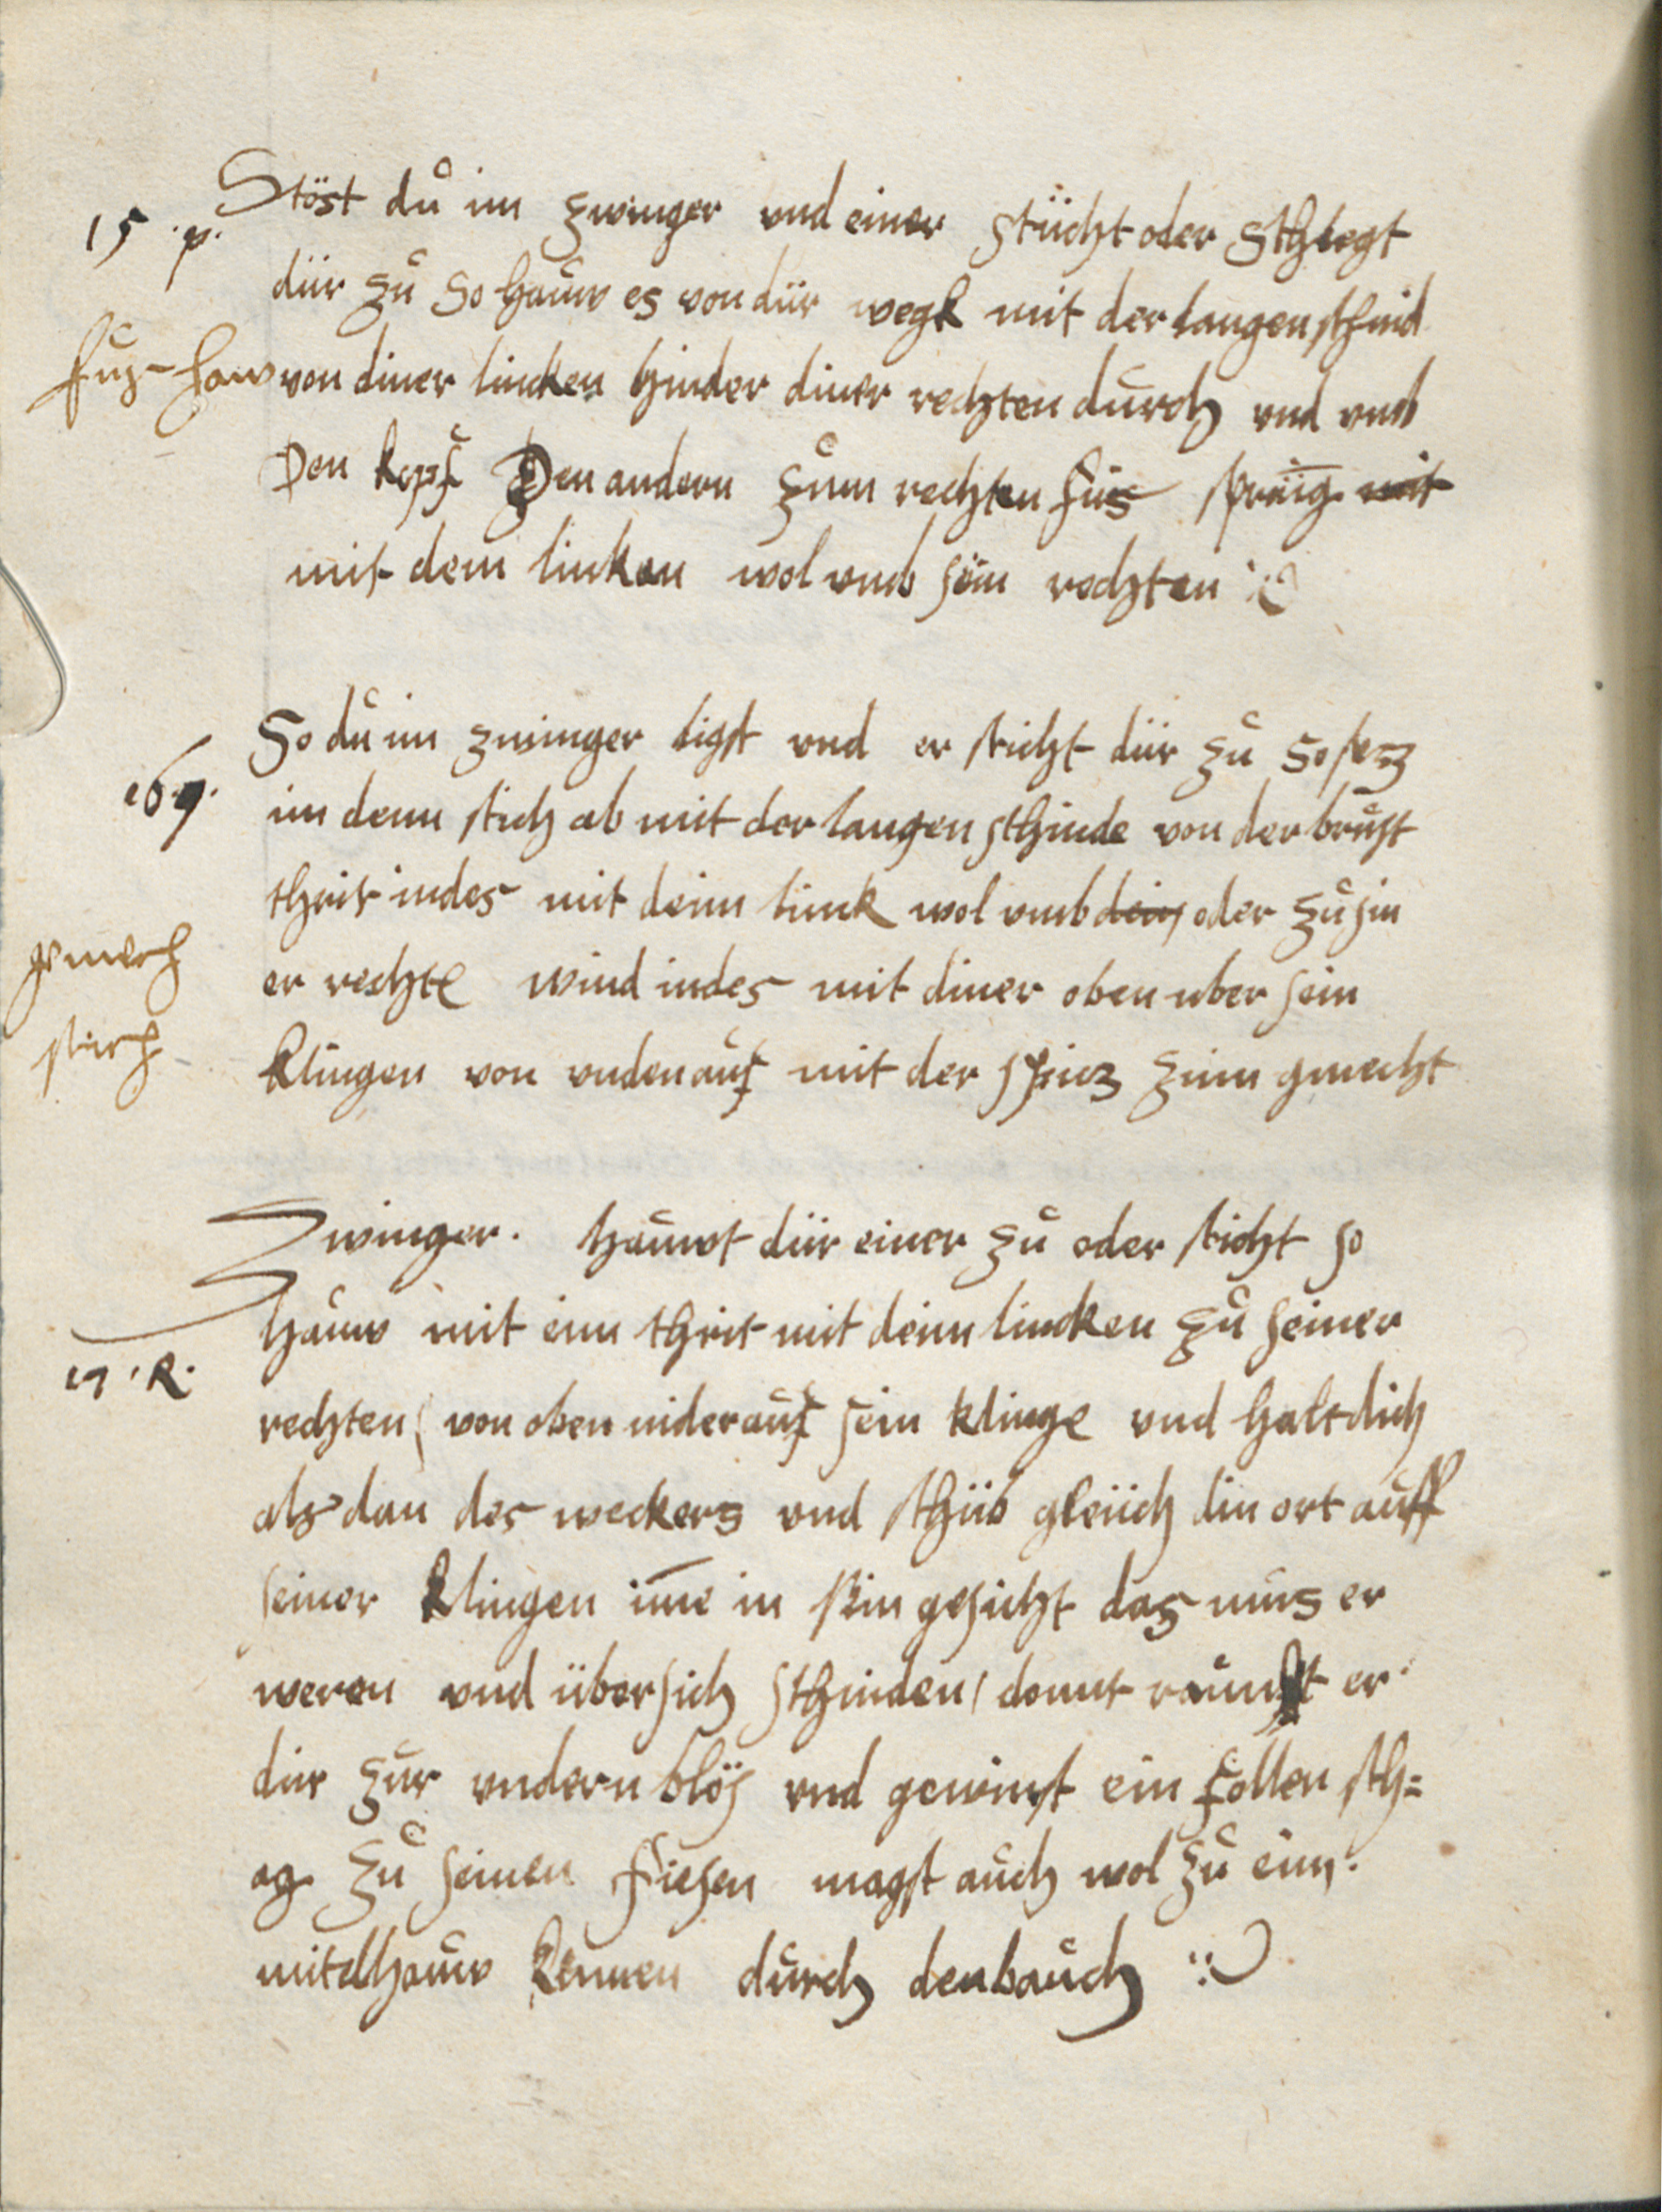 15 .p.
Stöst dů im zwinger vnd einer stücht oder schlegt
dür zů So hauw es von dür wegk mit der langen schnid
fuz-haw
von diner lincken hinder diner rechten důrch vnd vmb
Den kopf Den andern zům rechten fůs spring mit
mit dem linken wol vmb sein rechten
16 q.
So dů im zwinger ligst vnd er sticht dür zů So sez
im denn stich ab mit der langen schnide von der brůst
thrit indes mit deim linck wol vmb dein oder zů sin
gmech
stich
er rechte wind indes mit diner oben uber sein
klingen von vnden auf mit der spicz zům gmecht
Zwinger. hauwt dür einer zů oder sticht so
17 .R.
hauw mit eim thrit mit deim lincken zů seiner
rechten von oben nider auf sein klinge vnd halt dich
als dan des weckers vnd schüb gleüch din ort auff
seiner klingen ime in sein gesicht das můs er
weren vnd über sich schniden / domit raumpt er
dür zůr vndern blös vnd gewinst ein follen sch=
ag zů seinen fiesen magst auch wol zů eim
mitelhauw kumen důrch den bauch